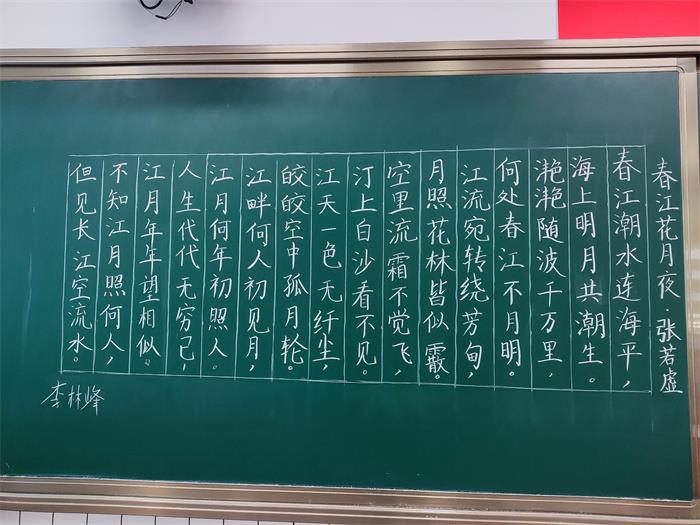 春江花月夜·张若虚
春江潮水连海平，
海上明月共潮生。
滟滟随波千万里，
何处春江不月明。
江流宛转绕芳甸，
月照花林皆似霰。
空里流霜不觉飞，
汀上白沙看不见。
江天一色无纤尘，
皎皎空中孤月轮。
江畔何人初见月，
江月何年初照人。
人生代代无穷已，
江月年年望相似。
不知江月照何人，
但见长江空流水。
李林峰